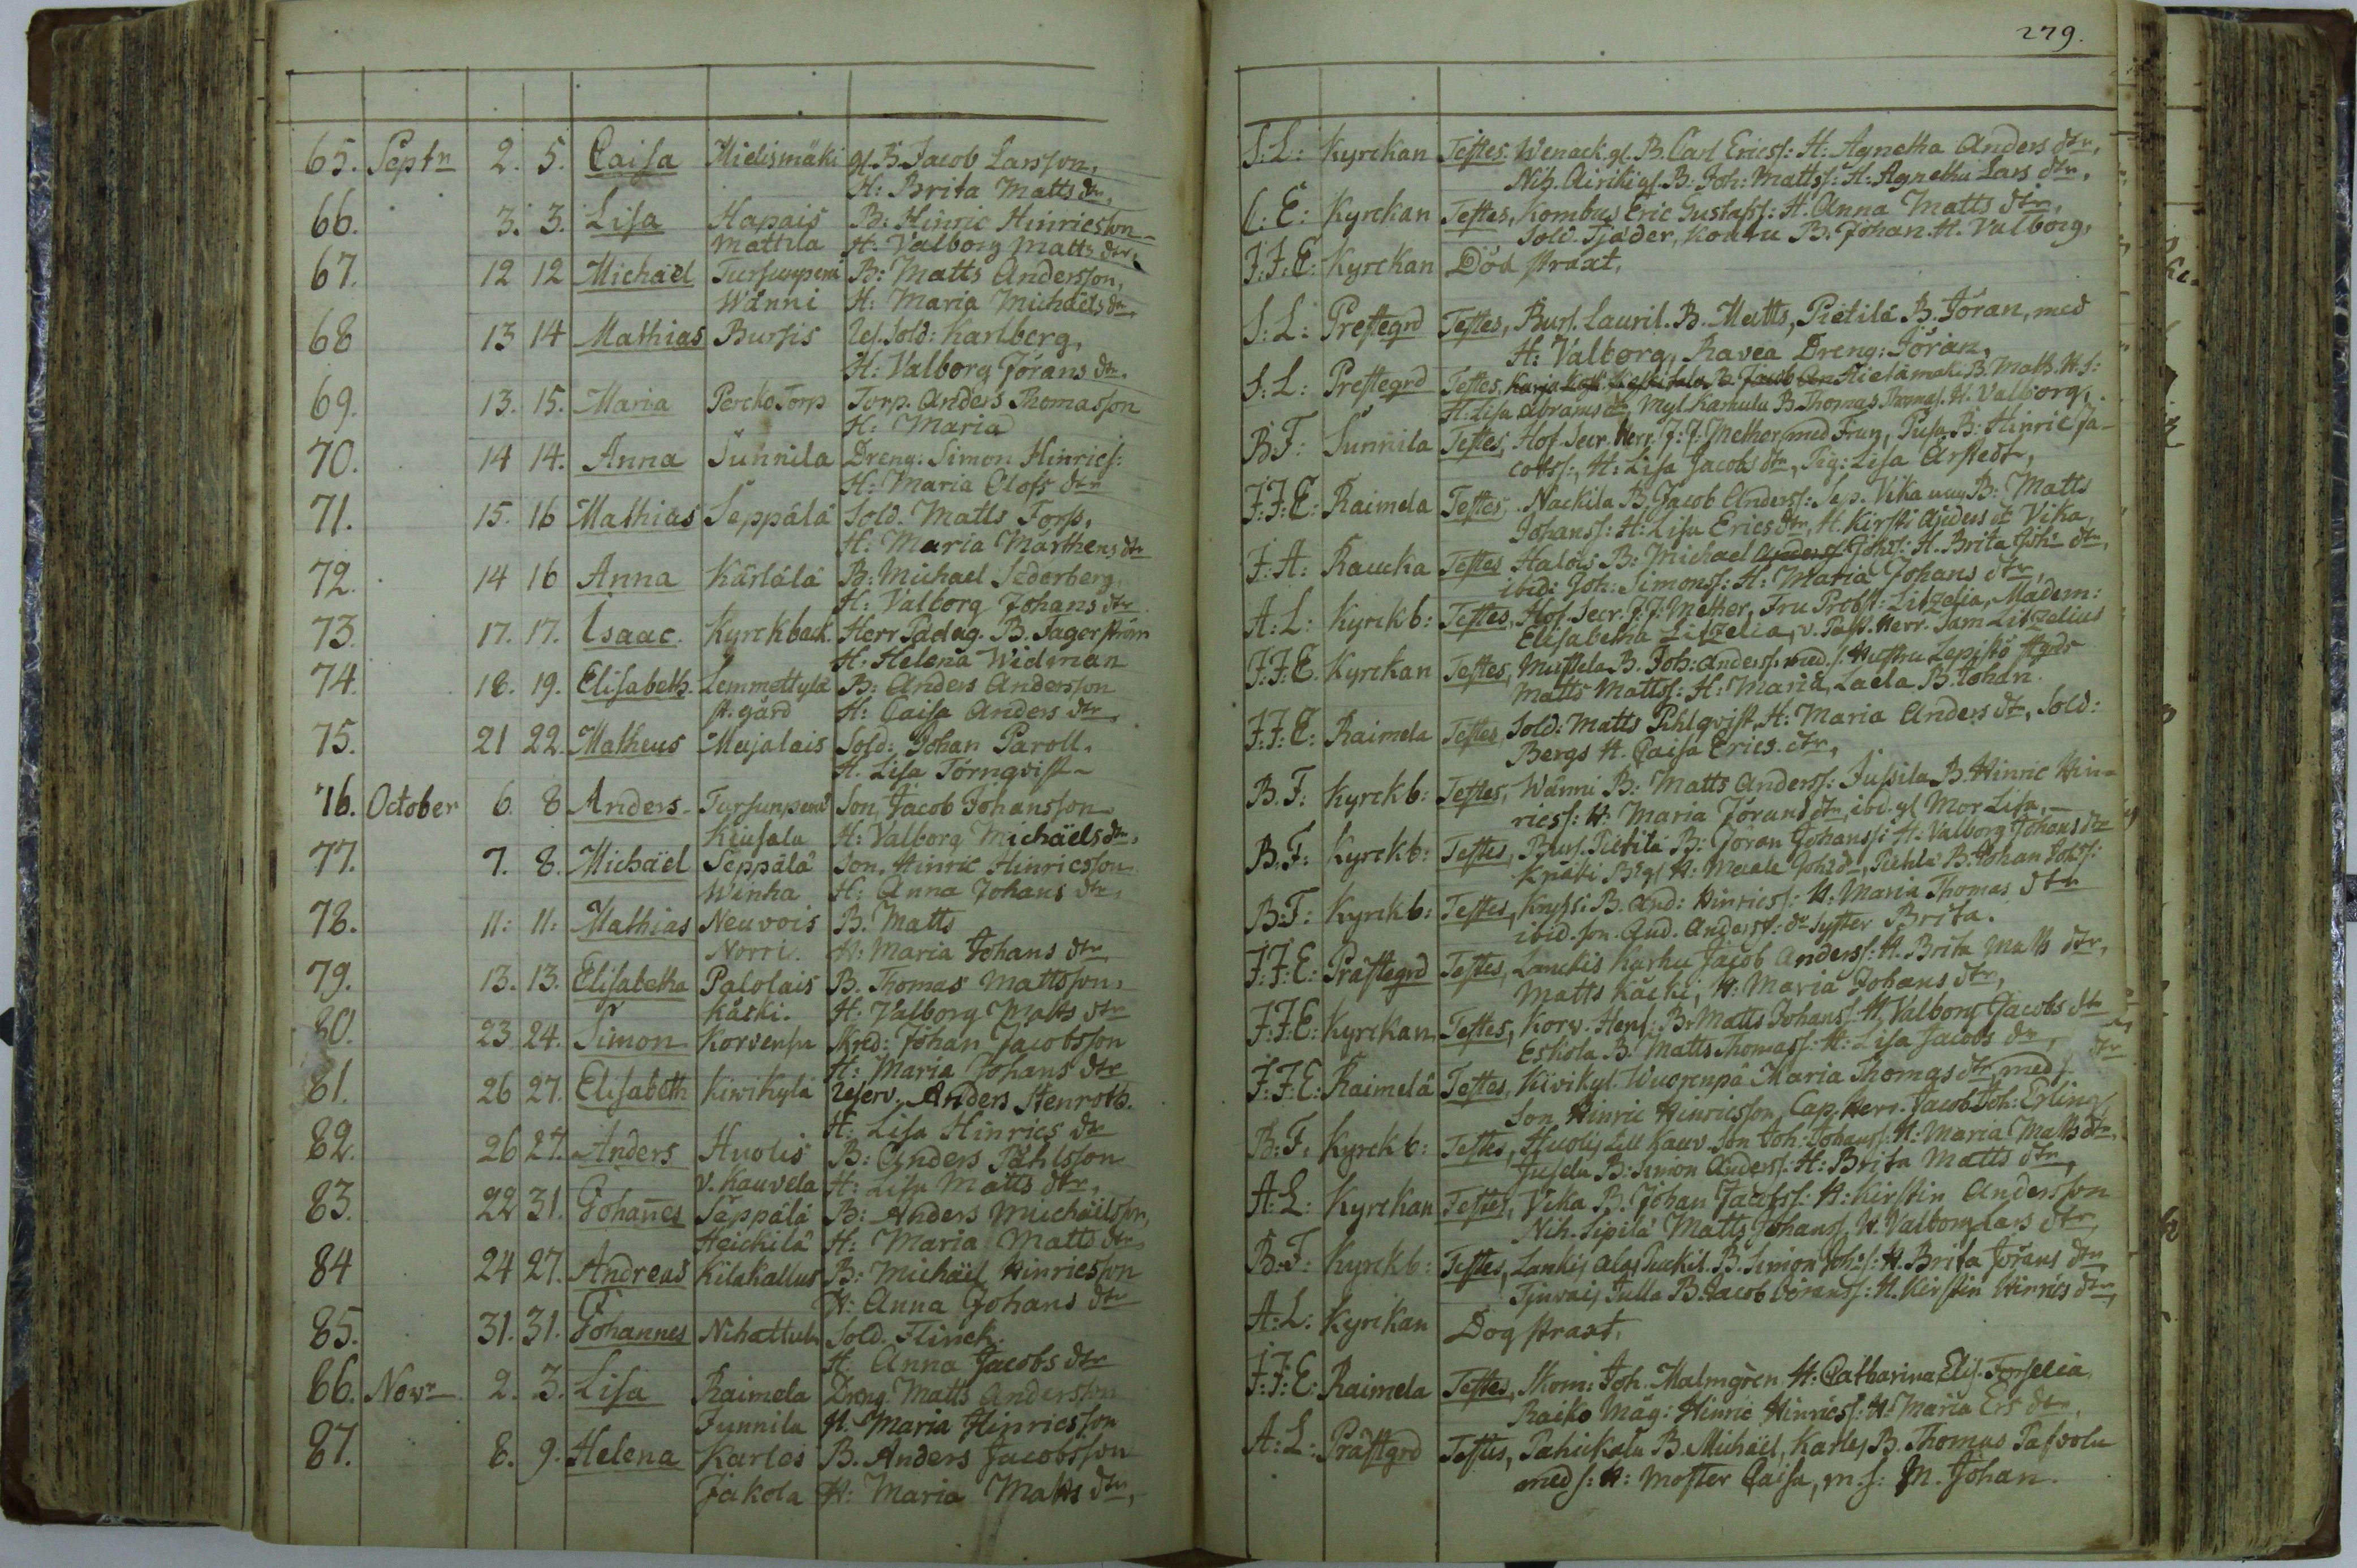 65. Septr 2. 5. Caisa Mielismäki gl. B. Jacob Larsson,
H: Brita Matts dr,
66. 3. 3. Lisa Hapais B: Hinric Hinricsson
Mattila H: Valborg Matts dtr,
67. 12 12 Michaël B: Matts Andersson,
Wänni H: Maria Michaëls dr,
68 13 14 Mathias Bursis Sold: Karlberg,
H: Valborg Jörans dtr.
69. 13. 15. Maria Torp Torp. Anders Thomasson
H: Maria
70. 14 14. Anna Sunnila Dreng. Simon Hinrics:
H: Maria Olofs dtr
71. 15. 16 Mathias Seppälä Sold. Matts Fors,
H: Maria Marthens dtr
72. 14 16 Anna Kärlälä B: Michael Sederberg,
H: Valborg Johans dtr
73. 17. 17. Isaac. Kyrckback. Herr Pädag. B. Fagerström
H: Helena Widman
74. 18. 19. Elisabeth. Lemmettylä B: Anders Andersson
st. gård H: Caisa Anders dtr,
75. 21 22. Matheus Majalais Sold: Johan Paroll,
H. Lisa Törnqvist
76. October 6. 8 Anders Son Jacob Johansson
H: Valborg Michaëls dtr,
77. 7. 8. Michaël Seppälä Son, Hinric Hinricsson
Winha H: Anna Johans dtr,
78. 11: 11: Mathias Neuvois B. Matts
Norri. H: Maria Johans dtr
79. 13. 13. Elisabetha Palolais B. Thomas Mattsson,
Käcki. H: Valborg Matts dtr
80. 23. 24. Simon Korvensu Johan Jacobsson
H: Maria Johans dtr
81. 26 27. Elisabeth Kivikylä Reserv. Anders Stenroth.
H: Lisa Hinrics dr
82. 26 27. Anders Huolis B: Anders Påhlsson
v. Kauvela H: Lisa Matts dtr,
83. 22 31. Johannes Seppälä B: Anders Michaëlsson,
Heickilä H: Maria Matts dtr,
84 24 27. Andreas Kilakallus B: Michaël Hinricsson
H: Anna Johans dtr
85. 31. 31. Johannes Nihattula Sold. Flinck.
H. Anna Jacobs dtr
86. Novr 2. 3. Lisa Raimela Dreng Matts Andersson
Junnila H. Maria Hinricsson
87. 8. 9. Helena Karlos B. Anders Jacobsson
Jakola H: Maria Matts dtr,
279.
S: L: Kyrckan Testes: Wenack. gl. B. Carl Erics: H: Agnetha Anders dtr,
Nih. Airiki gl. B: Joh: Matts: H: Agnetha Lars dtr,
C: E: Kyrckan Testes, Eric Gustafs: H. Anna Matts dtr,
Sold. Tjäder, B. Johan. H. Valborg,
J: J: E: Kyrckan Död straxt,
S: L: Prestegrd Testes, Burs. Lauril. B. Matts, Pietilä B. Jöran, med
H: Valborg, Ravea Dreng: Jöran,
S: L: Prestegrd Testes, B. Matts. H. S:
H: Lisa Abrams dtr Myl. Karhula B. Thomas Thomas. H. Valborg,
B: F: Sunnila Testes, Hof. Secr. Herr. J: J: Mether, med Frun, Pusa B: Hinric Ja-
cobss:, H: Lisa Jacobs dtr, Pig: Lisa Arstedt,
J: J: E: Raimela Testes, Nackila B. Jacob Anders: Sep. Vika B: Matts
Johans: H: Lisa Erics dtr, H. Kirsti Vika,
J: A: Raucka Testes Halois B: Michael Johs: H. Brita Joh: dtr,
ibid: Joh: Simons: H: Maria Johans dtr,
A: L: Kyrckb: Testes, Hof. Secr. J: J: Mether, Fru Probst: Litzelia, Madem:
Elisabetha Litzelia, v. Past. Herr. Sam Litzelius
J: J: E. Kyrckan Testes, Mustela B. Joh: Anders: med s. Hustru Lepistö
Matts Matts: H: Maria, Laela B. Johan.
J: J: E: Raimela Testes, Sold: Matts Pihlqvist, H: Maria Anders dtr, Sold:
Bergs H. Caisa Erics dtr,
B. F: Kyrckb: Testes, Wänni B: Matts Anders: Jussila B. Hinric Hin-
rics: H: Maria Jörans dtr, ibid. gl Mor Lisa,
B. F: Kyrckb: Testes, Burs. Pietilä B: Jöran Johans: H: Valborg Johans dtr
B. Johan Johs:
B: F: Kyrckb: Testes, B. And: Hinrics: H: Maria Thomas dtr
ibid. son. And. Anders: dr Syster Brita.
J: J: E: Prästegrd Testes, Lanckis Karhu Jacob Anders: H. Brita Matts dtr,
Matts Käcki, H: Maria Johans dtr,
J: J: E: Kyrckan Testes, Korv. B: Matts Johans: H. Valborg Jacobs dtr
Eskola B: Matts Thomas: H: Lisa Jacobs dr,
J: J: E: Raimelä Testes, Kivikyl. Wuorenpä Maria Thomas dtr med s.
Son Hinric Hinricsson, Cap. Herr. Jacob Joh: Erling,
B: F: Kyrckb: Testes, Huolis Lill Kauv. Son Joh: Johans: H: Maria Matts dtr,
B: Simon Anders: H: Brita Matts dtr,
A: L: Kyrckan Testes, Vika B. Johan Jacobs: H: Kirstin Andersson
Nih. Sipilä Matts Johans, H. Valborg Lars dtr,
B: F: Kyrckb: Testes, Lankis B. Simon Johs: H. Brita Jörans dtr
Tulla B. Jacob Görans: H. Kirstin Hinrics dtr,
A: L: Kyrckan Dog straxt,
J: J: E: Raimela Testes, Joh. Malmgren H: Catharina Elis. Forselia,
Raiko Måg: Hinric Hinrics: H: Maria Ers dtr,
A: L: Prästgrd Testes, B. Michaël, Karles B. Thomas
med s: H: Moster Caisa, m. s: M. Johan.